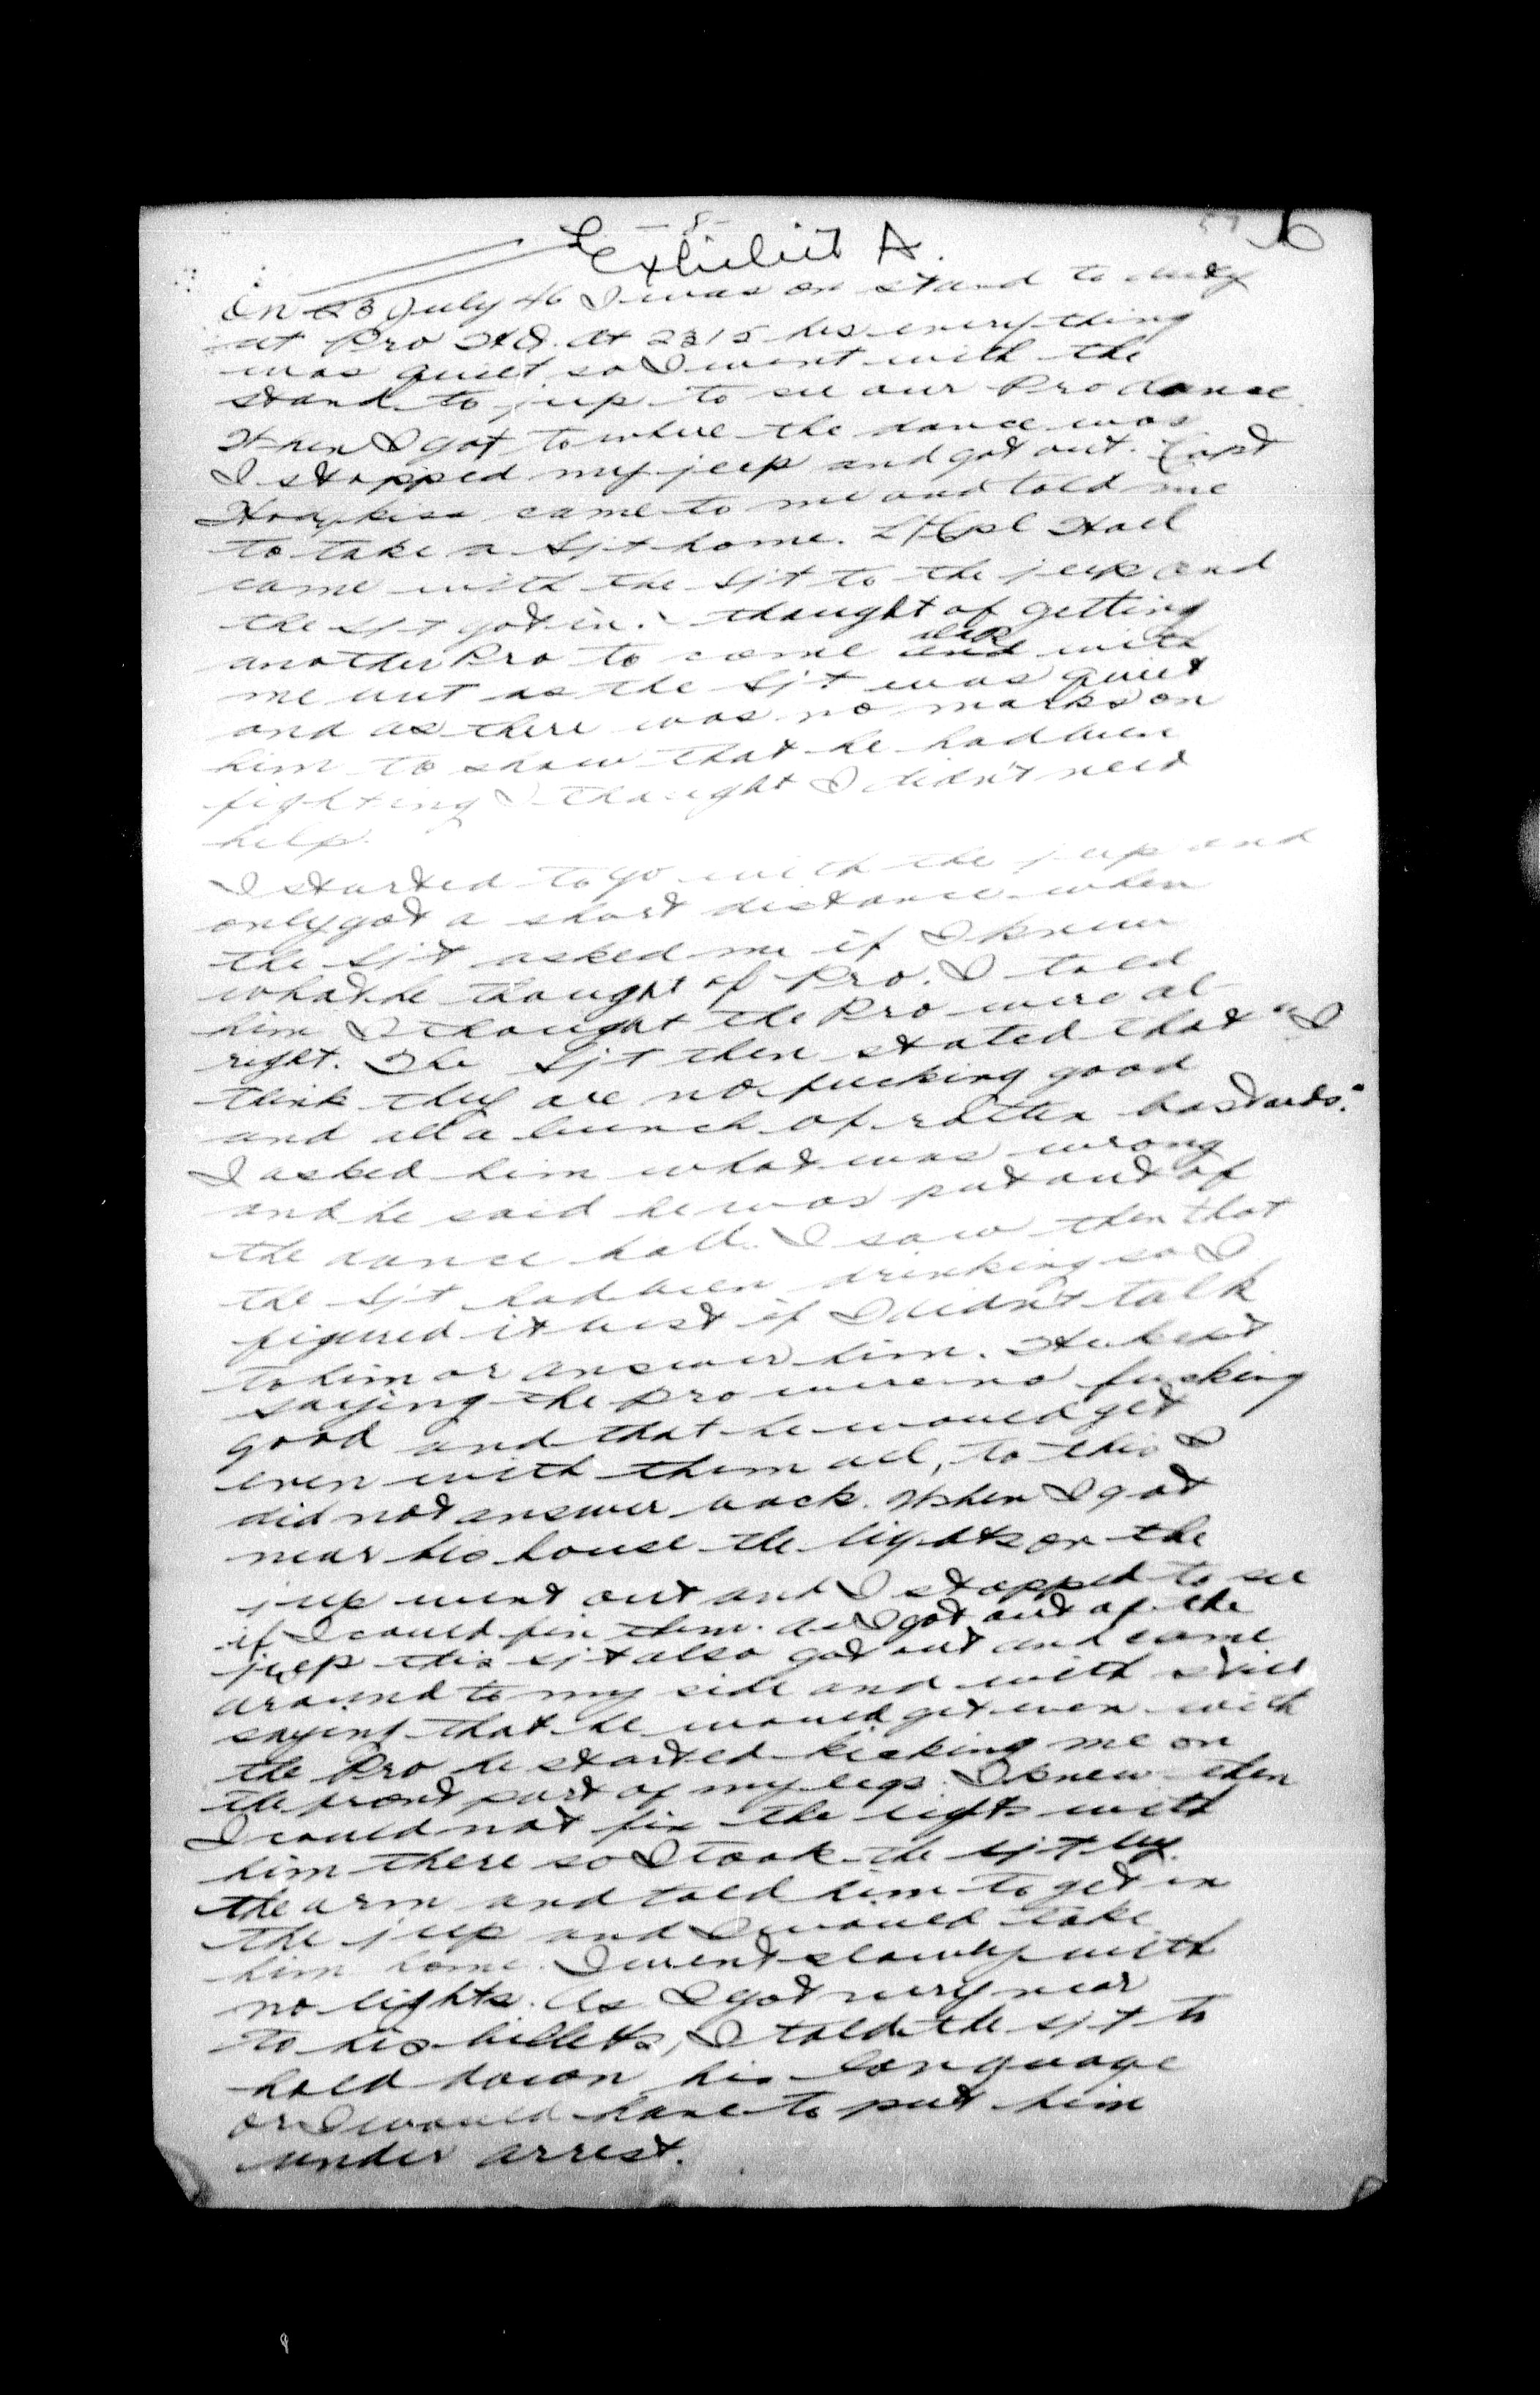 -8-
Exhibit A.
57 16
On 23 July 46 I was on stand to duty
at Pro HQ. At 2315 hrs everything
was quiet so I went with the
stand to jeep to see our Pro dance.
When I got to where the dance was
I stopped my jeep and got out. Capt
Hodgkiss came to me and told me
to take a Sjt home. L/Cpl Hall
came with the Sjt to the jeep and
the Sjt got in. I thought of getting
another Pro to come with
me but as the Sjt was quiet
and as there was no marks on
him to show that he had been
fighting I thought I didn't need
help.
I started to go with the jeep and
only got a short distance when
the Sjt asked me if I knew
what he thought of Pro. I told
him I thought the Pro were al-
right. The Sjt then stated that "I
think they are no fucking good
and all a bunch of rotten bastards."
I asked him what was wrong
and he said he was put out of
the dance hall. I saw then that
the Sjt had been drinking so I
figured it best if I didn't talk
to him or answer him. He kept
saying the Pro were no fucking
good and that he would get
even with them all, to this I
did not answer back. When I got
near his house the lights on the
jeep went out and I stopped to see
if I could fix them. As I got out of the
jeep this sjt also got out and came
around to my side and with still
saying that he would get even with
the Pro he started kicking me on
the front part of my legs. I knew then
I could not fix the lights with
him there so I took the sjt by
the arm and told him to get in
the jeep and I would take
him home. I went slowly with
no lights. As I got very near
to his billets, I told the sjt to
hold down his language
or I would have to put him
under arrest.